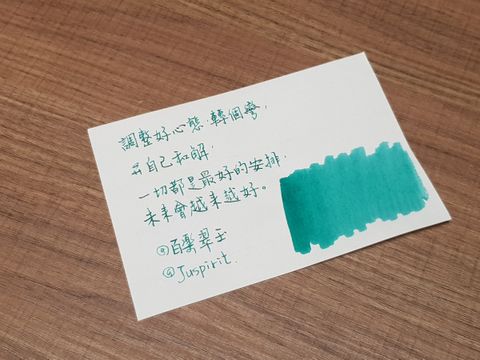 調整好心態,轉個彎,
與自己和解,
一切都是最好的安排,
未來會越來越好。
百樂翠玉
Juspirit.